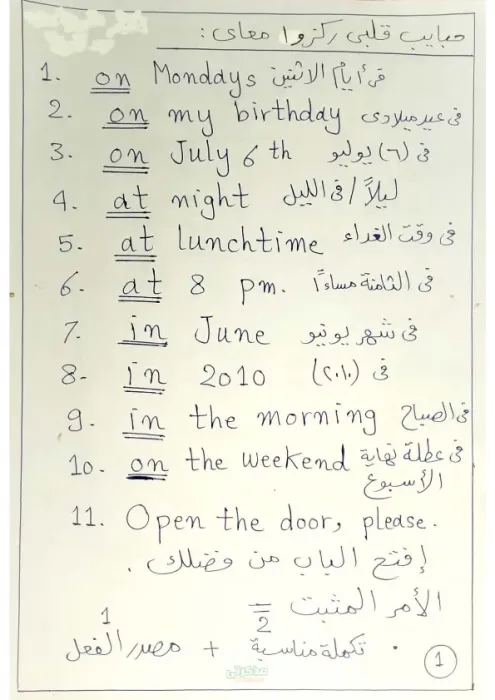 حبايب قلبي ركزوا معاي :
1. on Mondays في أيام الاثنين
2. on my birthday في عيد ميلادي
3. on July 6 th في (٦) يوليو
4. at night ليلاً / في الليل
5. at lunchtime في وقت الغداء
6. at 8 pm. في الثامنة مساءً
7. in June في شهر يونيو
8- in 2010 في (٢٠١٠)
9. in the morning في الصباح
10. on the weekend في عطلة نهاية
الأسبوع
11. Open the door, please.
إفتح الباب من فضلك .
الأمر المثبت =
1 2
• تكملة مناسبة + مصدر الفعل
1
مذكرتي